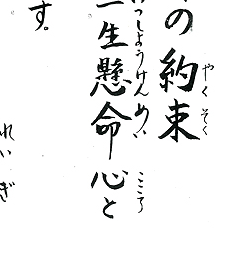 の約束
やくそく
一生懸命心と
っしょうけんめい こころ
す。
れいぎ